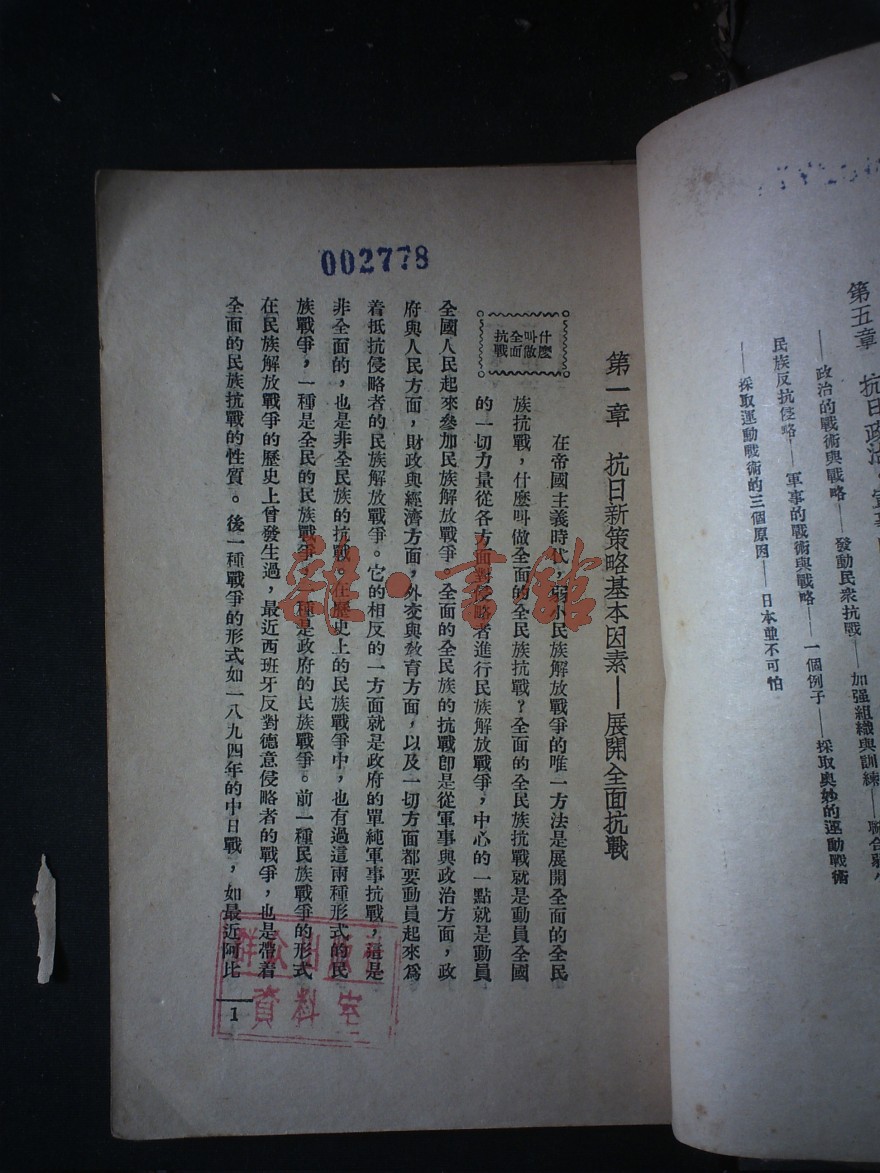 第五章 抗日政治
——政治的戰術與戰略——發動民衆抗戰——加强組織與訓練——聯合弱小
民族反抗侵略——軍事的戰術與戰略——一個例子——採取奥妙的運動戰術
——採取運動戰術的三個原因——日本並不可怕
002778
第一章 抗日新策略基本因素——展開全面抗戰
什麼
叫做
全面
抗戰
在帝國主義時代，弱小民族解放戰爭的唯一方法是展開全面的全民
族抗戰，什麼叫做全面的全民族抗戰？全面的全民族抗戰就是動員全國
的一切力量從各方面對侵略者進行民族解放戰爭，中心的一點就是動員
全國人民起來參加民族解放戰爭。全面的全民族的抗戰卽是從軍事與政治方面，政
府與人民方面，財政與經濟方面，外交與敎育方面，以及一切方面都要動員起來爲
着抵抗侵略者的民族解放戰爭。它的相反的一方面就是政府的單純軍事抗戰，這是
非全面的，也是非全民族的抗戰。在歷史上的民族戰爭中，也有過這兩種形式的民
族戰爭，一種是全民的民族戰爭，一種是政府的民族戰爭。前一種民族戰爭的形式
在民族解放戰爭的歷史上曾發生過，最近西班牙反對德意侵略者的戰爭，也是帶着
全面的民族抗戰的性質。後一種戰爭的形式如一八九四年的中日戰，如最近阿比
1
雜·書館
群众出版社
資料室